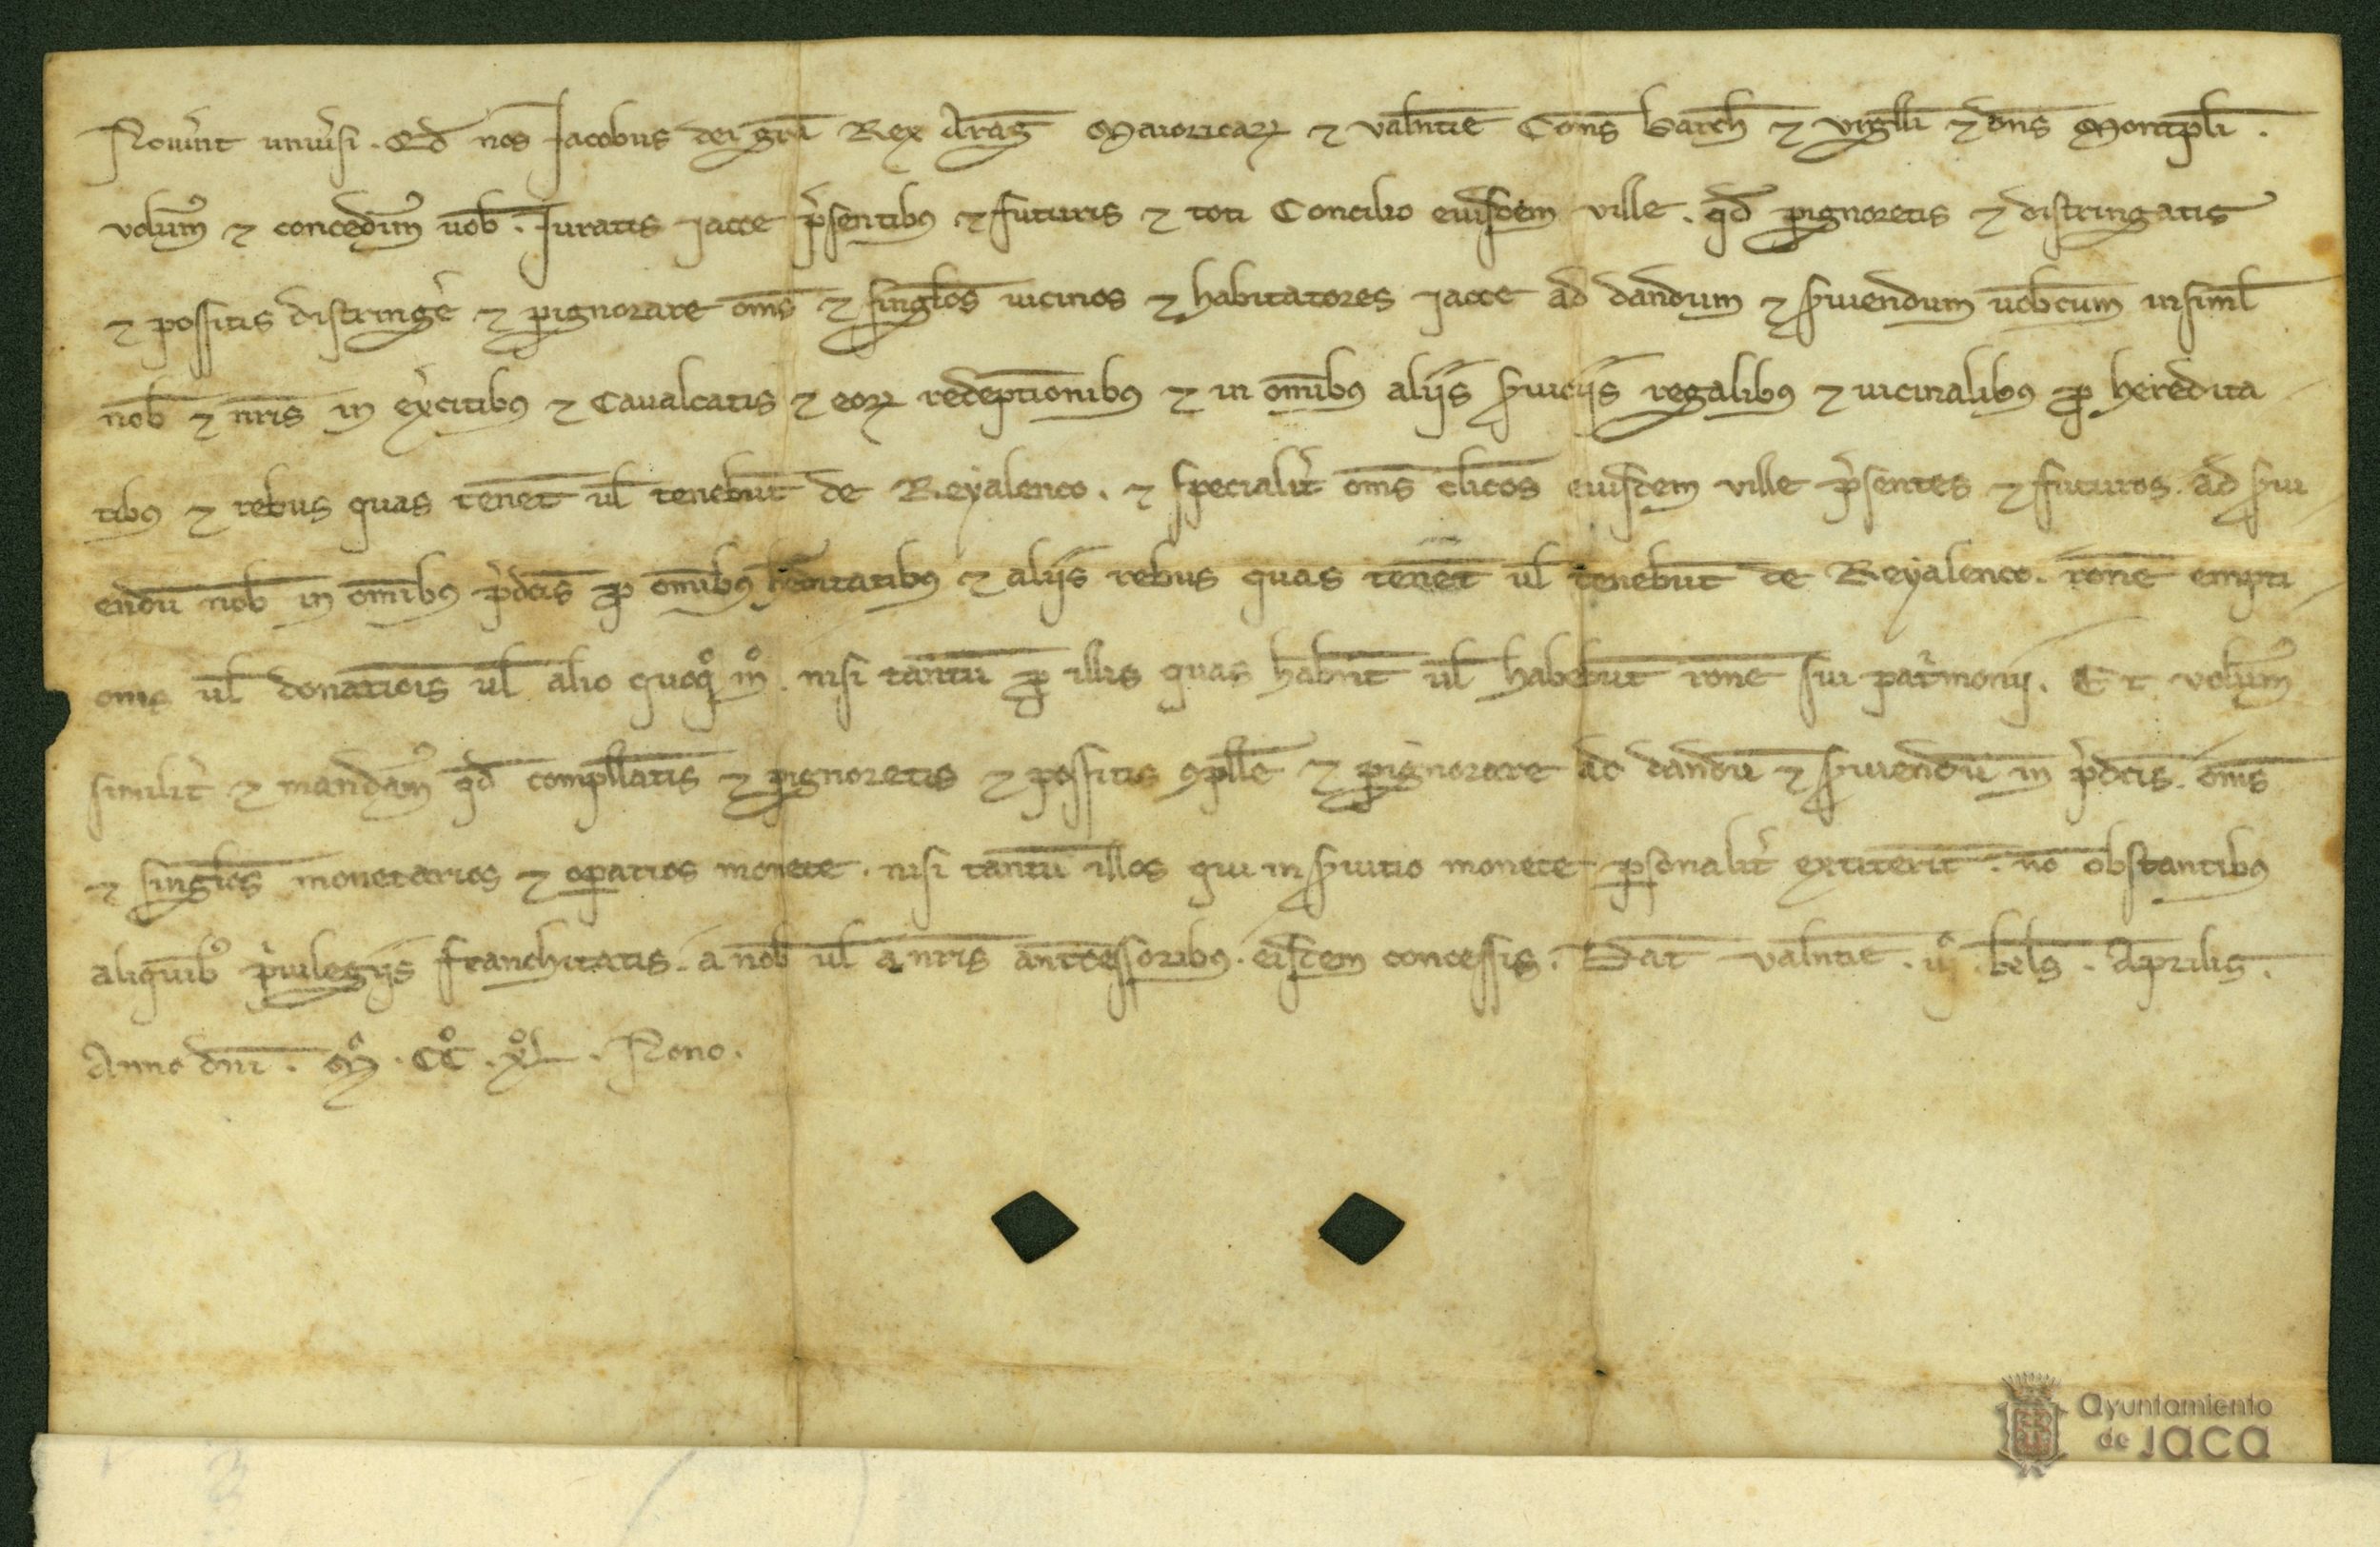 Nou̾int uniu̾si . Qd̄ nos Jacobus dei gr̄a Rex Araḡ Maioricaꝝ ⁊ Valn̄tie Com̄s barch̄ ⁊ Vrgll̄i ⁊ dn̄s Montpl̄i .
volum᾿ ⁊ concedim᾿ uob̄ . Juratis jacce p̾sentibꝰ ⁊ futuris ⁊ toti Concilio eiusdem ville . qd̄ pignoretis ⁊ distringatis
⁊ possitis distring̾e ⁊ pignorare om̄s ⁊ singl̄os uicinos ⁊ habitatores jacce ad dandum ⁊ s̾uiendum uob̄cum insiml̄
nob̄ ⁊ nr̄is in ex̾citibꝰ ⁊ Caualcatis ⁊ eoꝝ redēptionibꝰ ⁊ in om̄ibꝰ aliis s̾uiciis regalibꝰ ⁊ uicinalibꝰ ꝓ heredita
tibꝰ ⁊ rebus quas tenēt ul̄ tenebūt de Reyalenco . ⁊ specialit̾ om̄s cl̄icos eiusdem ville p̾sentes ⁊ futuros . ad s̾ui
endū nob̄ in om̄ibꝰ p̾dc̄is ꝓ om̄ibꝰ h̾editatibꝰ ⁊ aliis rebus quas tenēt ul̄ tenebūt de Reyalenco . rōne empti
onis ul̄ donatiōis ul̄ alio quoqͦ mͦ . nisi tantū ꝓ illis quas habn̄t ul̄ habebūt rōne sui pat̾monij . Et volum᾿
similit̾ ⁊ mandam᾿ qd̄ compll̄atis ⁊ pignoretis ⁊ possitis ꝯpll̄e ⁊ pignorare ad dandū ⁊ s̾uiendū in p̾dc̄is . om̄s
⁊ singl̄os monetarios ⁊ oꝑarios monete . nisi tantū illos qui in s̾uitio monete ꝑsonalit̾ extiterīt . nō obstantibꝰ
aliquibꝰ p̾uilegiis franchitatis . a nob̄ ul̄ a nr̄is antc̄essoribꝰ . eisdem concessis . Dat̄ Valn̄tie . ijͦ . kl̄s . Aprilis .
Anno dn̄i . Mͦ . CCͦ . XͦL . Nono .
ayuntamiento
de jaca